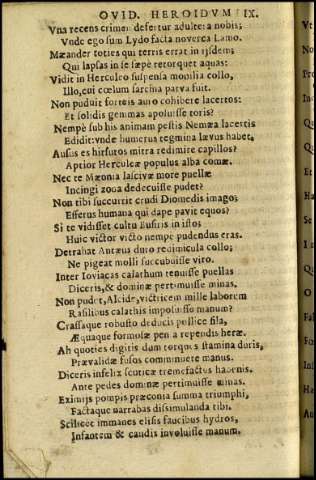 OVID. HEROIDVM IX.
Vna recens crimen defertur adultera nobis;
Vnde ego sum Lydo facta noverca Lamo.
Mæander toties qui terris errat in ijsdem;
Qui lapsas in se sæpè retorquet aquas:
Vidit in Herculeo suspensa monilia collo,
Illo, cui cœlum sarcina parva fuit.
Non puduit forteis auro cohibere lacertos:
Et solidis gemmas apoluisse toris?
Nempè sub his animam pestis Nemæa lacertis
Edidit: vnde humerus tegmina lævus habet,
Ausus es hirsutos mitra redimire capillos?
Aptior Herculeæ populus alba comæ.
Nec te Mæonia lascivæ more puellæ
Incingi zona dedecuisse pudet?
Non tibi succurrit crudi Diomedis imago;
Efferus humana qui dape pavit equos?
Si te vidisset cultu Busiris in isto;
Huic victor victo nempè pudendus eras.
Detrahat Antæus duro redimicula collo;
Ne pigeat molli succubuisse viro.
Inter Ioviacas calathum tenuisse puellas
Diceris, & dominæ pertimuisse minas.
Non pudet, Alcide, victricem mille laborem
Rasilibus calathis imposuisse manum?
Crassaque robusto deducis pollice fila,
Æquaque formosæ pen a rependis heræ.
Ah quoties digitis dum torques stamina duris,
Prævalidæ fusos comminuere manus.
Diceris infelix scuticæ tremefactus habenis.
Ante pedes dominæ pertimuisse minas.
Eximijs pompis præconia summa triumphi,
Factaque narrabas dissimulanda tibi.
Scilicet immanes elisis faucibus hydros,
Infantem & caudis involuisse manum.